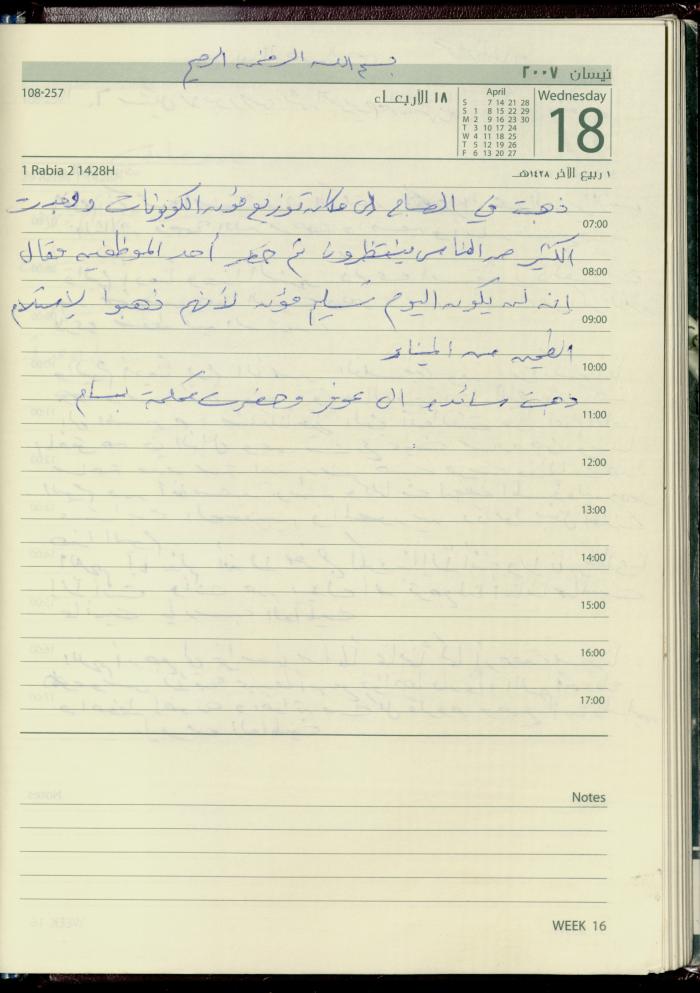 بسم الله الرحمن الرحيم
نيسان ٢٠٠٧
108-257
١٨ الأربعاء
April
S 7 14 21 28
S 1 8 15 22 29
M 2 9 16 23 30
T 3 10 17 24
W 4 11 18 25
T 5 12 19 26
F 6 13 20 27
Wednesday
18
1 Rabia 2 1428H
١ ربيع الآخر ١٤٢٨هـ
ذهبت في الصباح الى مكان توزيع مؤن الكوبونات ووجدت
07:00
الكثير من الناس ينتظرون ثم حضر أحد الموظفين فقال
08:00
إنه لن يكون اليوم تسليم مؤن لأنهم ذهبوا لإستلام
09:00
الطحين من الميناء
10:00
ذهبت سائدة الى وحضرت بسام
11:00
12:00
13:00
14:00
15:00
16:00
17:00
Notes
WEEK 16